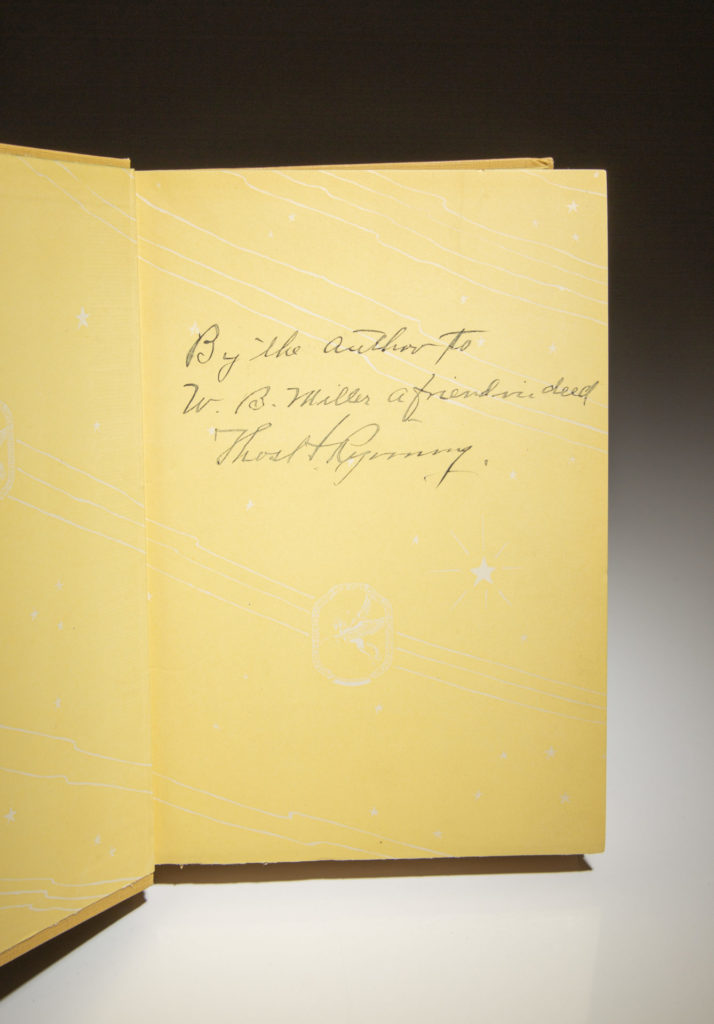 By the author to
W. B. Miller a friend in deed
Thos. H. Rynning.